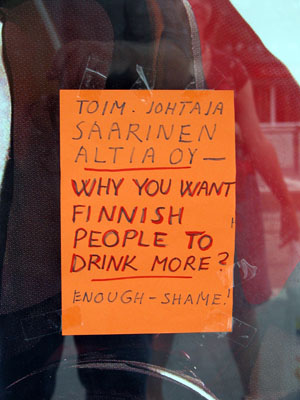 TOIM. JOHTAJA
SAARINEN
ALTIA OY —
WHY YOU WANT
FINNISH
PEOPLE TO
DRINK MORE?
ENOUGH - SHAME!